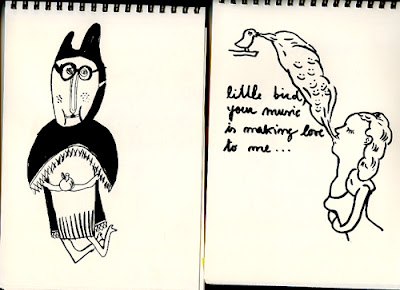 little bird,
your music
is making love
to me...